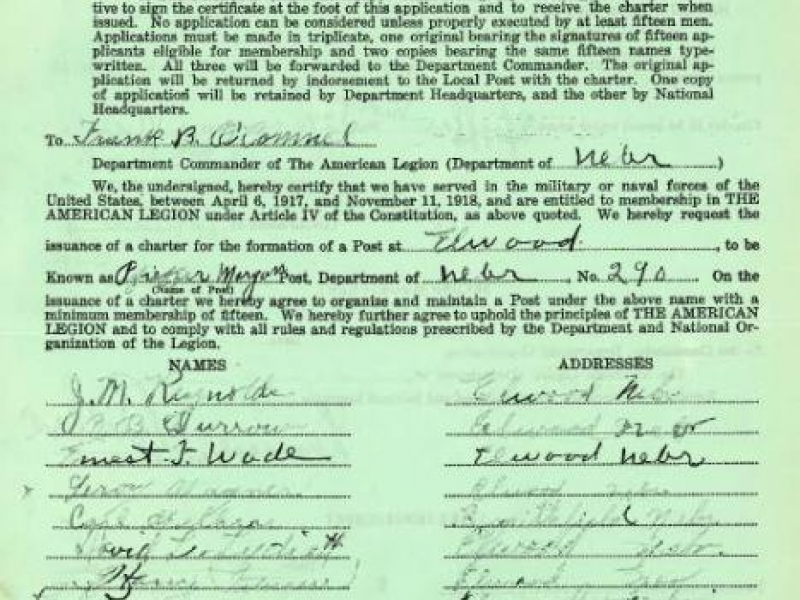 tive to sign the certificate at the foot of this application and to receive the charter when
issued. No application can be considered unless properly executed by at least fifteen men.
Applications must be made in triplicate, one original bearing the signatures of fifteen ap-
plicants eligible for membership and two copies bearing the same fifteen names type-
written. All three will be forwarded to the Department Commander. The original ap-
plication will be returned by indorsement to the Local Post with the charter. One copy
of application will be retained by Department Headquarters, and the other by National
Headquarters.
To Frank B. O'Connel
Department Commander of The American Legion (Department of Nebr)
We, the undersigned, hereby certify that we have served in the military or naval forces of the
United States, between April 6, 1917, and November 11, 1918, and are entitled to membership in THE
AMERICAN LEGION under Article IV of the Constitution, as above quoted. We hereby request the
issuance of a charter for the formation of a Post at Elwood, to be
Known as Morgan Post, Department of Nebr, No. 290 On the
(Name of Post)
issuance of a charter we hereby agree to organize and maintain a Post under the above name with a
minimum membership of fifteen. We hereby further agree to uphold the principles of THE AMERICAN
LEGION and to comply with all rules and regulations prescribed by the Department and National Or-
ganization of the Legion.
NAMES ADDRESSES
J. M. Reynolds Elwood Nebr
B. Durrow Elwood Nebr
Ernest F. Wade Elwood Nebr
Elwood Nebr
Smithfield Nebr.
David Elwood Nebr.
Elwood Nebr